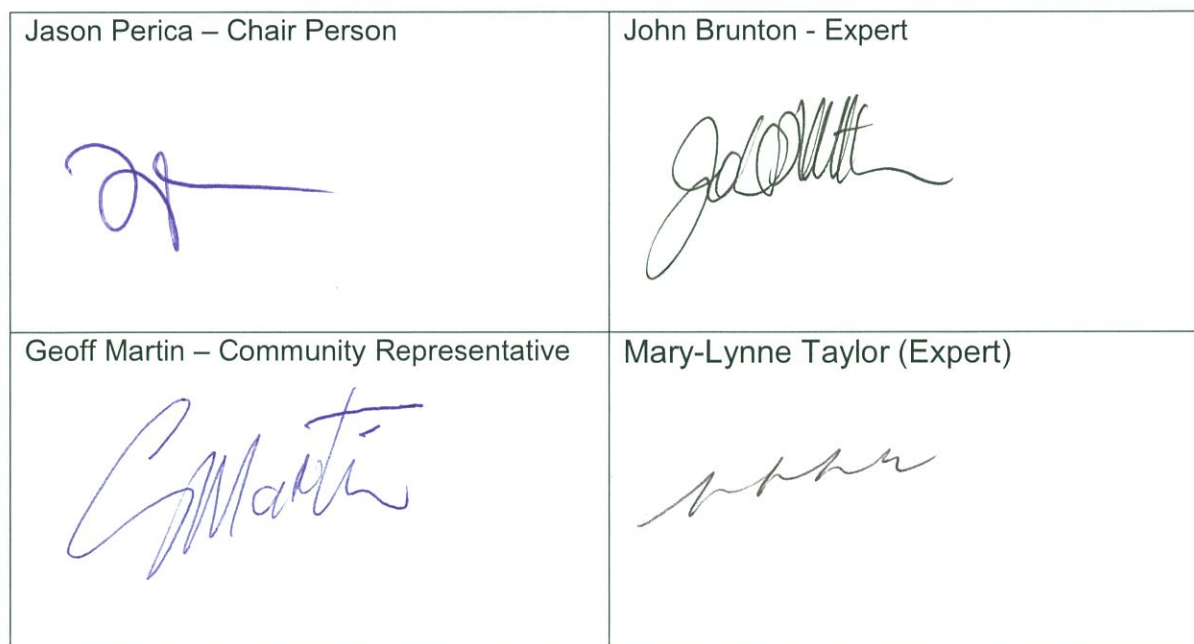 Jason Perica – Chair Person
John Brunton - Expert
Geoff Martin – Community Representative
GMartin
Mary-Lynne Taylor (Expert)